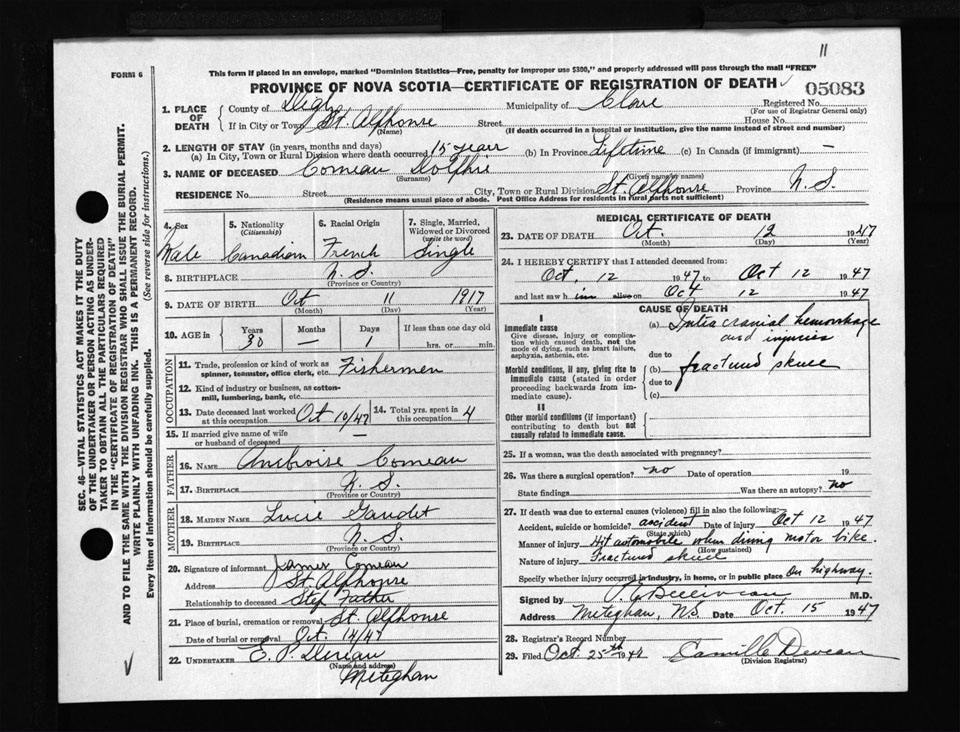 11
FORM 6
This form if placed in an envelope, marked "Dominion Statistics—Free, penalty for improper use $300," and properly addressed will pass through the mail "FREE"
PROVINCE OF NOVA SCOTIA—CERTIFICATE OF REGISTRATION OF DEATH
05083
1. PLACE OF DEATH
County of Digby Municipality of Clare Registered No.
(For use of Registrar General only)
If in City or Town St. Alphonse Street House No.
(Name) (If death occurred in a hospital or institution, give the name instead of street and number)
2. LENGTH OF STAY (in years, months and days)
(a) In City, Town or Rural Division where death occurred 15 years (b) In Province Lifetime (c) In Canada (if immigrant) —
3. NAME OF DECEASED Comeau Dolphie
(Surname) (Given name or names)
RESIDENCE No. Street City, Town or Rural Division St. Alphonse Province N.S.
(Residence means usual place of abode. Post Office Address for residents in rural parts not sufficient)
4. Sex Male
5. Nationality (Citizenship) Canadian
6. Racial Origin French
7. Single, Married, Widowed or Divorced (write the word) Single
8. BIRTHPLACE N.S.
(Province or Country)
9. DATE OF BIRTH Oct 11 1917
(Month) (Day) (Year)
10. AGE in Years 30 Months — Days 1 If less than one day old
hrs. or min.
OCCUPATION
11. Trade, profession or kind of work as spinner, teamster, office clerk, etc. Fishermen
12. Kind of industry or business, as cotton-mill, lumbering, bank, etc.
13. Date deceased last worked at this occupation Oct 10/47 14. Total yrs. spent in this occupation 4
15. If married give name of wife or husband of deceased —
FATHER
16. NAME Ambroise Comeau
17. BIRTHPLACE N.S.
(Province or Country)
MOTHER
18. MAIDEN NAME Lucie Gaudet
19. BIRTHPLACE N.S.
(Province or Country)
20. Signature of informant James Comeau
Address St. Alphonse
Relationship to deceased Step Father
21. Place of burial, cremation or removal St. Alphonse
Date of burial or removal Oct. 14/47
22. UNDERTAKER E. P.
(Name and address)
Meteghan
MEDICAL CERTIFICATE OF DEATH
23. DATE OF DEATH Oct. 12 1947
(Month) (Day) (Year)
24. I HEREBY CERTIFY that I attended deceased from:
Oct, 12 1947 to Oct 12 1947
and last saw him alive on Oct 12 1947
CAUSE OF DEATH
I
Immediate cause
Give disease, injury or complication which caused death, not the mode of dying, such as heart failure, asphyxia, asthenia, etc.
(a) Intra cranial hemorrhage
and injuries
due to
Morbid conditions, if any, giving rise to immediate cause (stated in order proceeding backwards from immediate cause).
(b) fractured skull
due to
(c)
II
Other morbid conditions (if important) contributing to death but not causally related to immediate cause.
25. If a woman, was the death associated with pregnancy?
26. Was there a surgical operation? no Date of operation 19
State findings Was there an autopsy? no
27. If death was due to external causes (violence) fill in also the following:
Accident, suicide or homicide? accident Date of injury Oct 12 1947
(State which)
Manner of injury Hit automobile when driving motor bike.
(How sustained)
Nature of injury Fractured skull
Specify whether injury occurred in industry, in home, or in public place On highway.
Signed by M.D.
Address Meteghan, N.S. Date Oct. 15 1947
28. Registrar's Record Number
29. Filed Oct. 25th Camille Deveau
(Division Registrar)
SEC. 46—VITAL STATISTICS ACT MAKES IT THE DUTY
OF THE UNDERTAKER OR PERSON ACTING AS UNDER-
TAKER TO OBTAIN ALL THE PARTICULARS REQUIRED
IN THE "CERTIFICATE OF REGISTRATION OF DEATH"
AND TO FILE THE SAME WITH THE DIVISION REGISTRAR WHO SHALL ISSUE THE BURIAL PERMIT.
WRITE PLAINLY WITH UNFADING INK. THIS IS A PERMANENT RECORD.
Every item of information should be carefully supplied. (See reverse side for instructions.)